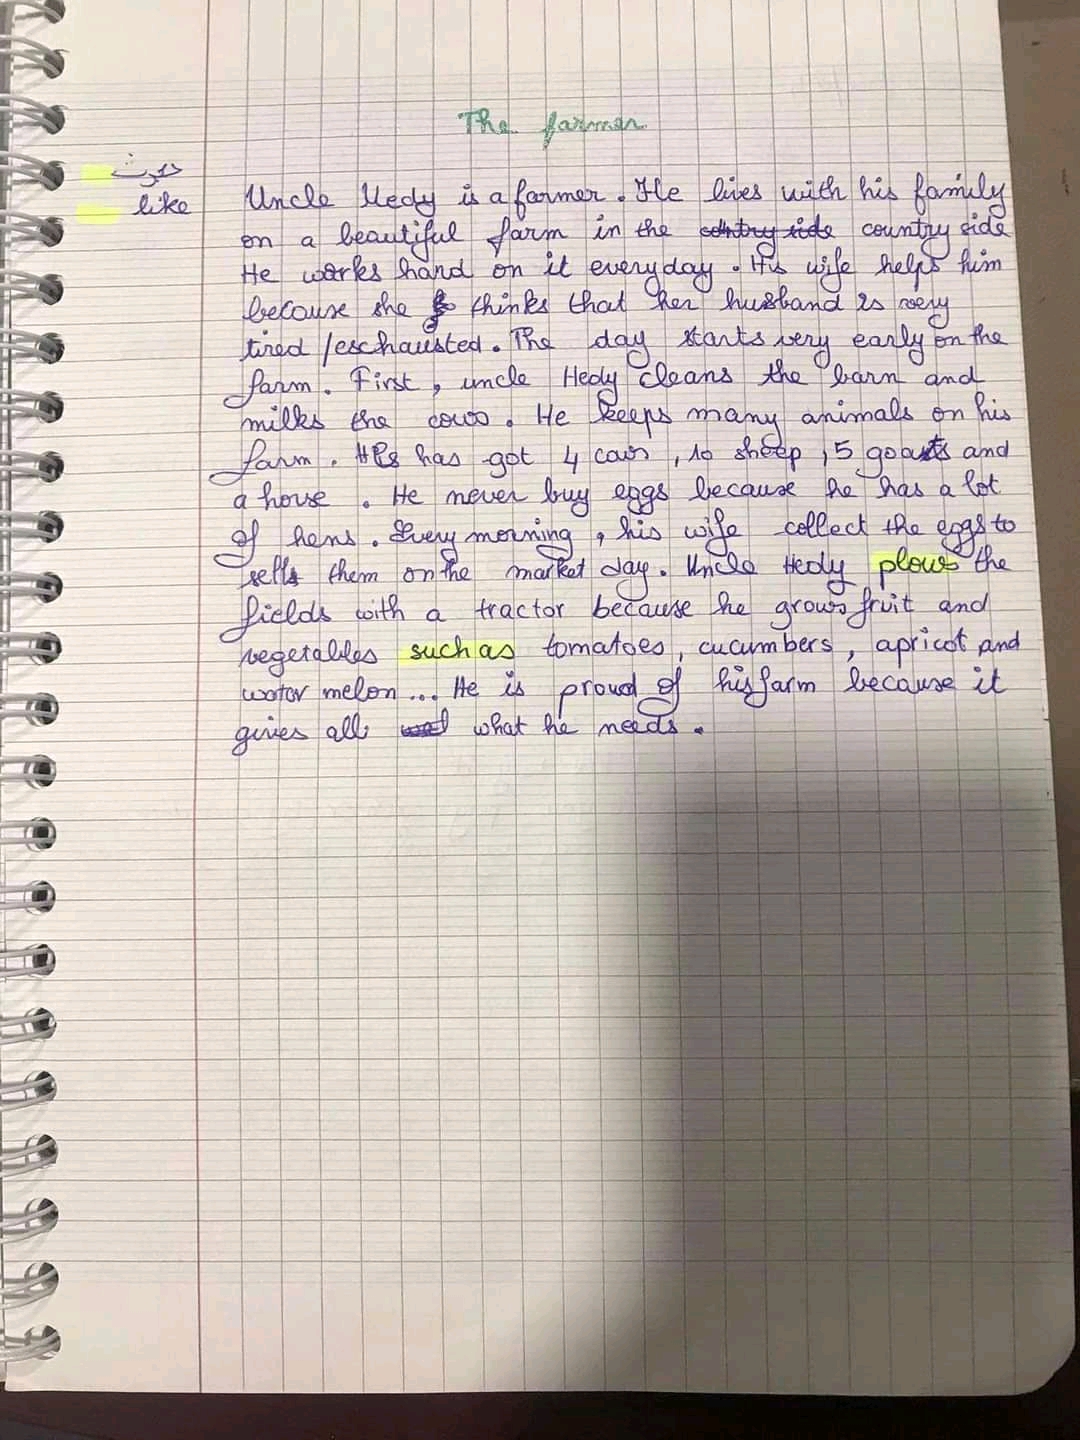 The farmer
يحرث
like
Uncle Hedy is a farmer. He lives with his family
on a beautiful farm in the country side country side
He works hard on it everyday. His wife helps him
because she thinks that her husband is very
tired / eschausted. The day starts very early on the
farm. First, uncle Hedy cleans the barn and
milks the cows. He keeps many animals on his
farm. He has got 4 cows, 10 sheep, 5 goats and
a horse. He never buy eggs because he has a lot
of hens. Every morning, his wife collect the eggs to
sells them on the market day. Uncle Hedy plows the
fields with a tractor because he grows fruit and
vegetables such as tomatoes, cucumbers, apricot and
water melon... He is proud of his farm because it
gives all what he needs.